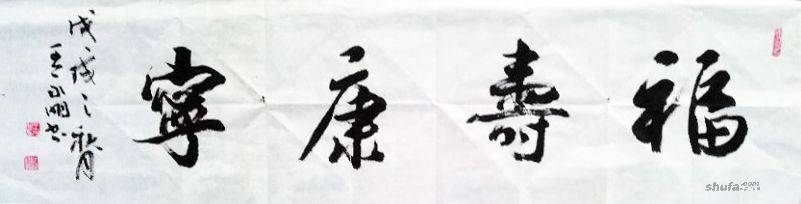 福壽康寧
戊戌之秋月
王永明书
shufa.com